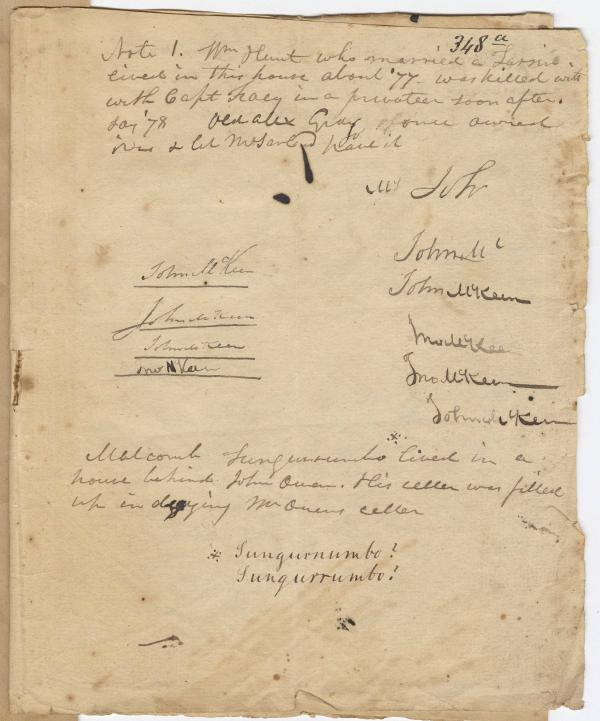 348 a
Note 1. Wm Hunt who married a
lived in this house about '77 was killed with
with Capt Tracy in a privateer soon after.
say '78 Old Alex Gray once owned
& Col have it
Mr Joh
John Mc
John McKeen
John McKeen
John McKeen
Jno McKeen
John McKeen
Jno McKeen
Jno McKeen
John McKeen
*
Malcomb Sungurrumbo lived in a
house behind John Owen. His celler was filled
up in digging Mr Owens celler
* Sungurnumbo?
Sungurrumbo?